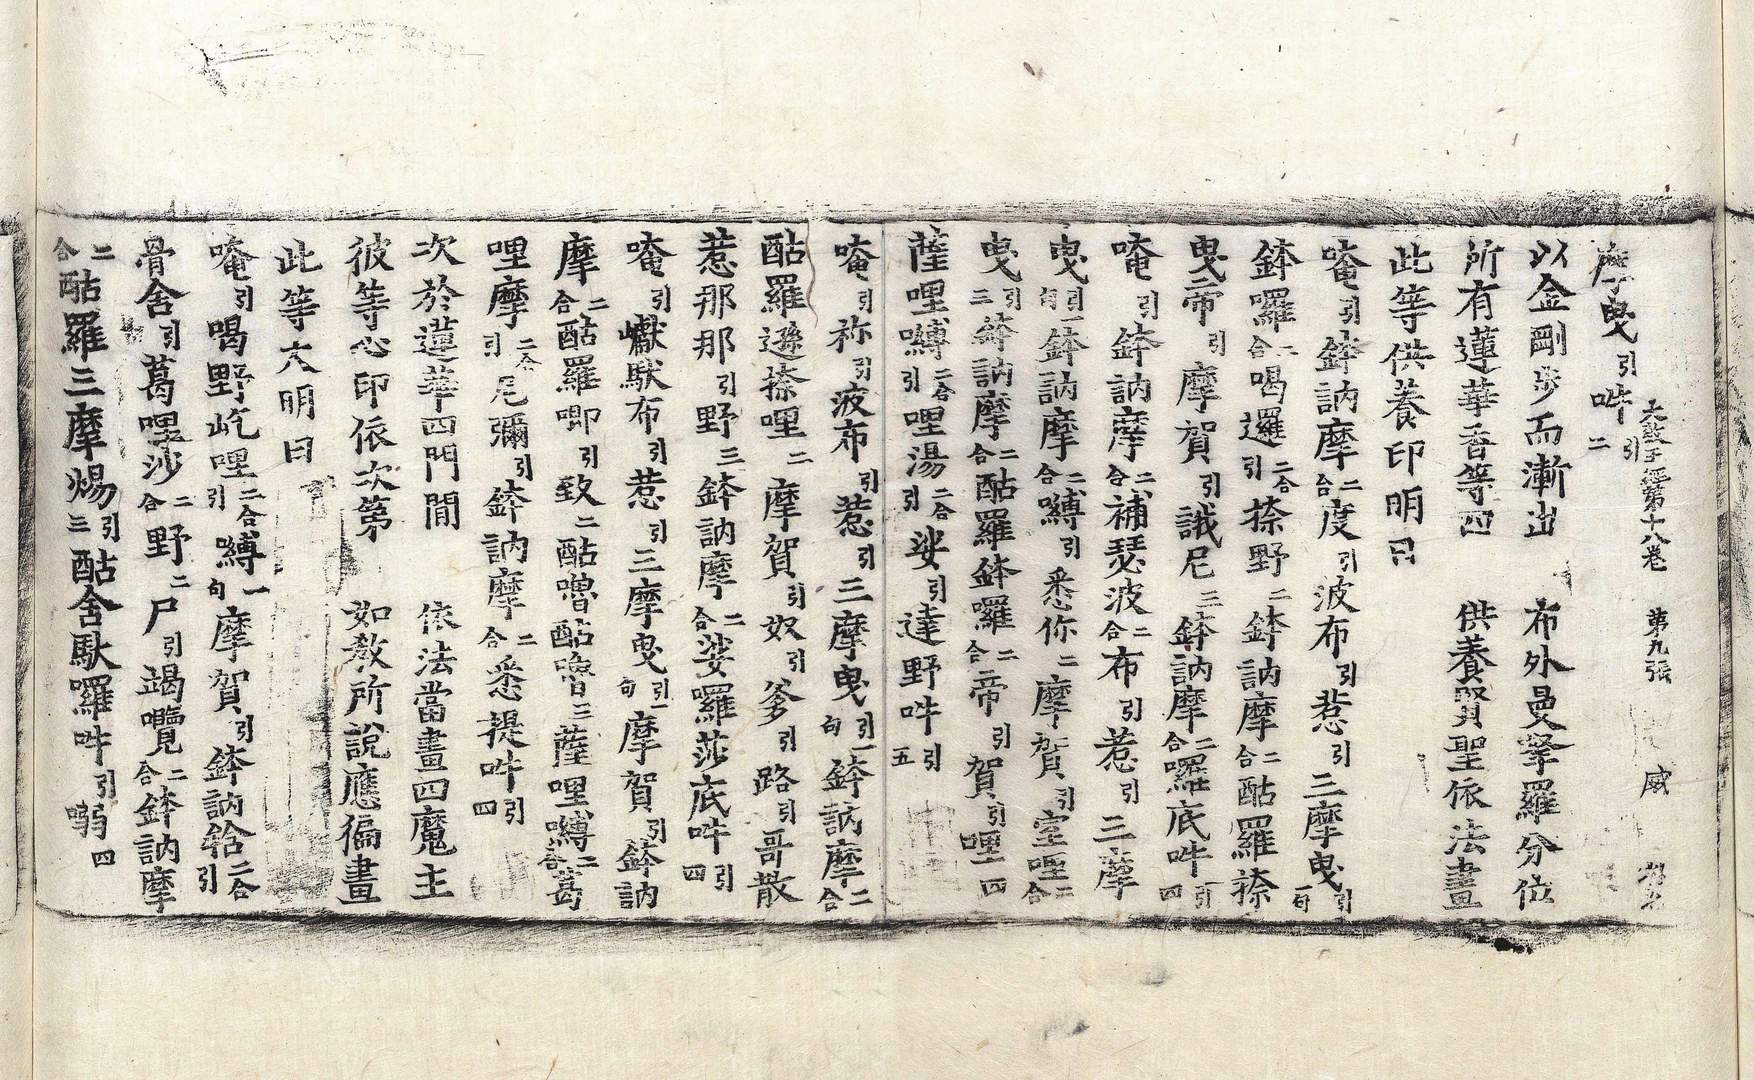 大教王經第十八卷　第九張　威
摩曳引吽引二
以金剛步而漸出　布外曼拏羅分位
所有蓮華香等四　供養賢聖依法畫
此等供養印明曰
唵引鉢訥摩二合度引波布引惹引三摩曳引一句
鉢囉二合喝邏二合引捺野二鉢訥摩二合酤羅捺
曳帝引摩賀引誐尼三鉢訥摩二合囉底吽引四
唵引鉢訥摩二合補瑟波二合布引惹引三摩
曳引一句鉢訥摩二合嚩引悉你二摩賀引室哩二合
曳引三鉢訥摩二合酤羅鉢囉二合帝引賀引哩四
薩哩嚩二合引哩湯二合引娑引達野吽引五
唵引祢引波布引惹引三摩曳引一句鉢訥摩二合
酤羅遜捺哩二摩賀引奴引爹引路引哥散
惹那那引野三鉢訥摩二合娑囉莎底吽引四
唵引巘馱布引惹引三摩曳引一句摩賀引鉢訥
摩二合酤羅唧引致二酤嚕酤嚕三薩哩嚩二合葛
哩摩二合引尼彌引鉢訥摩二合悉提吽引四
次於蓮華四門間　依法當畫四魔主
彼等心印依次第　如教所說應徧畫
此等大明曰
唵引喝野屹哩二合引嚩一句摩賀引鉢訥铪二合引
骨舍引葛哩沙二合野二尸引竭囕二合鉢訥摩
二合酤羅三摩煬引三酤舍馱囉吽引嘮四